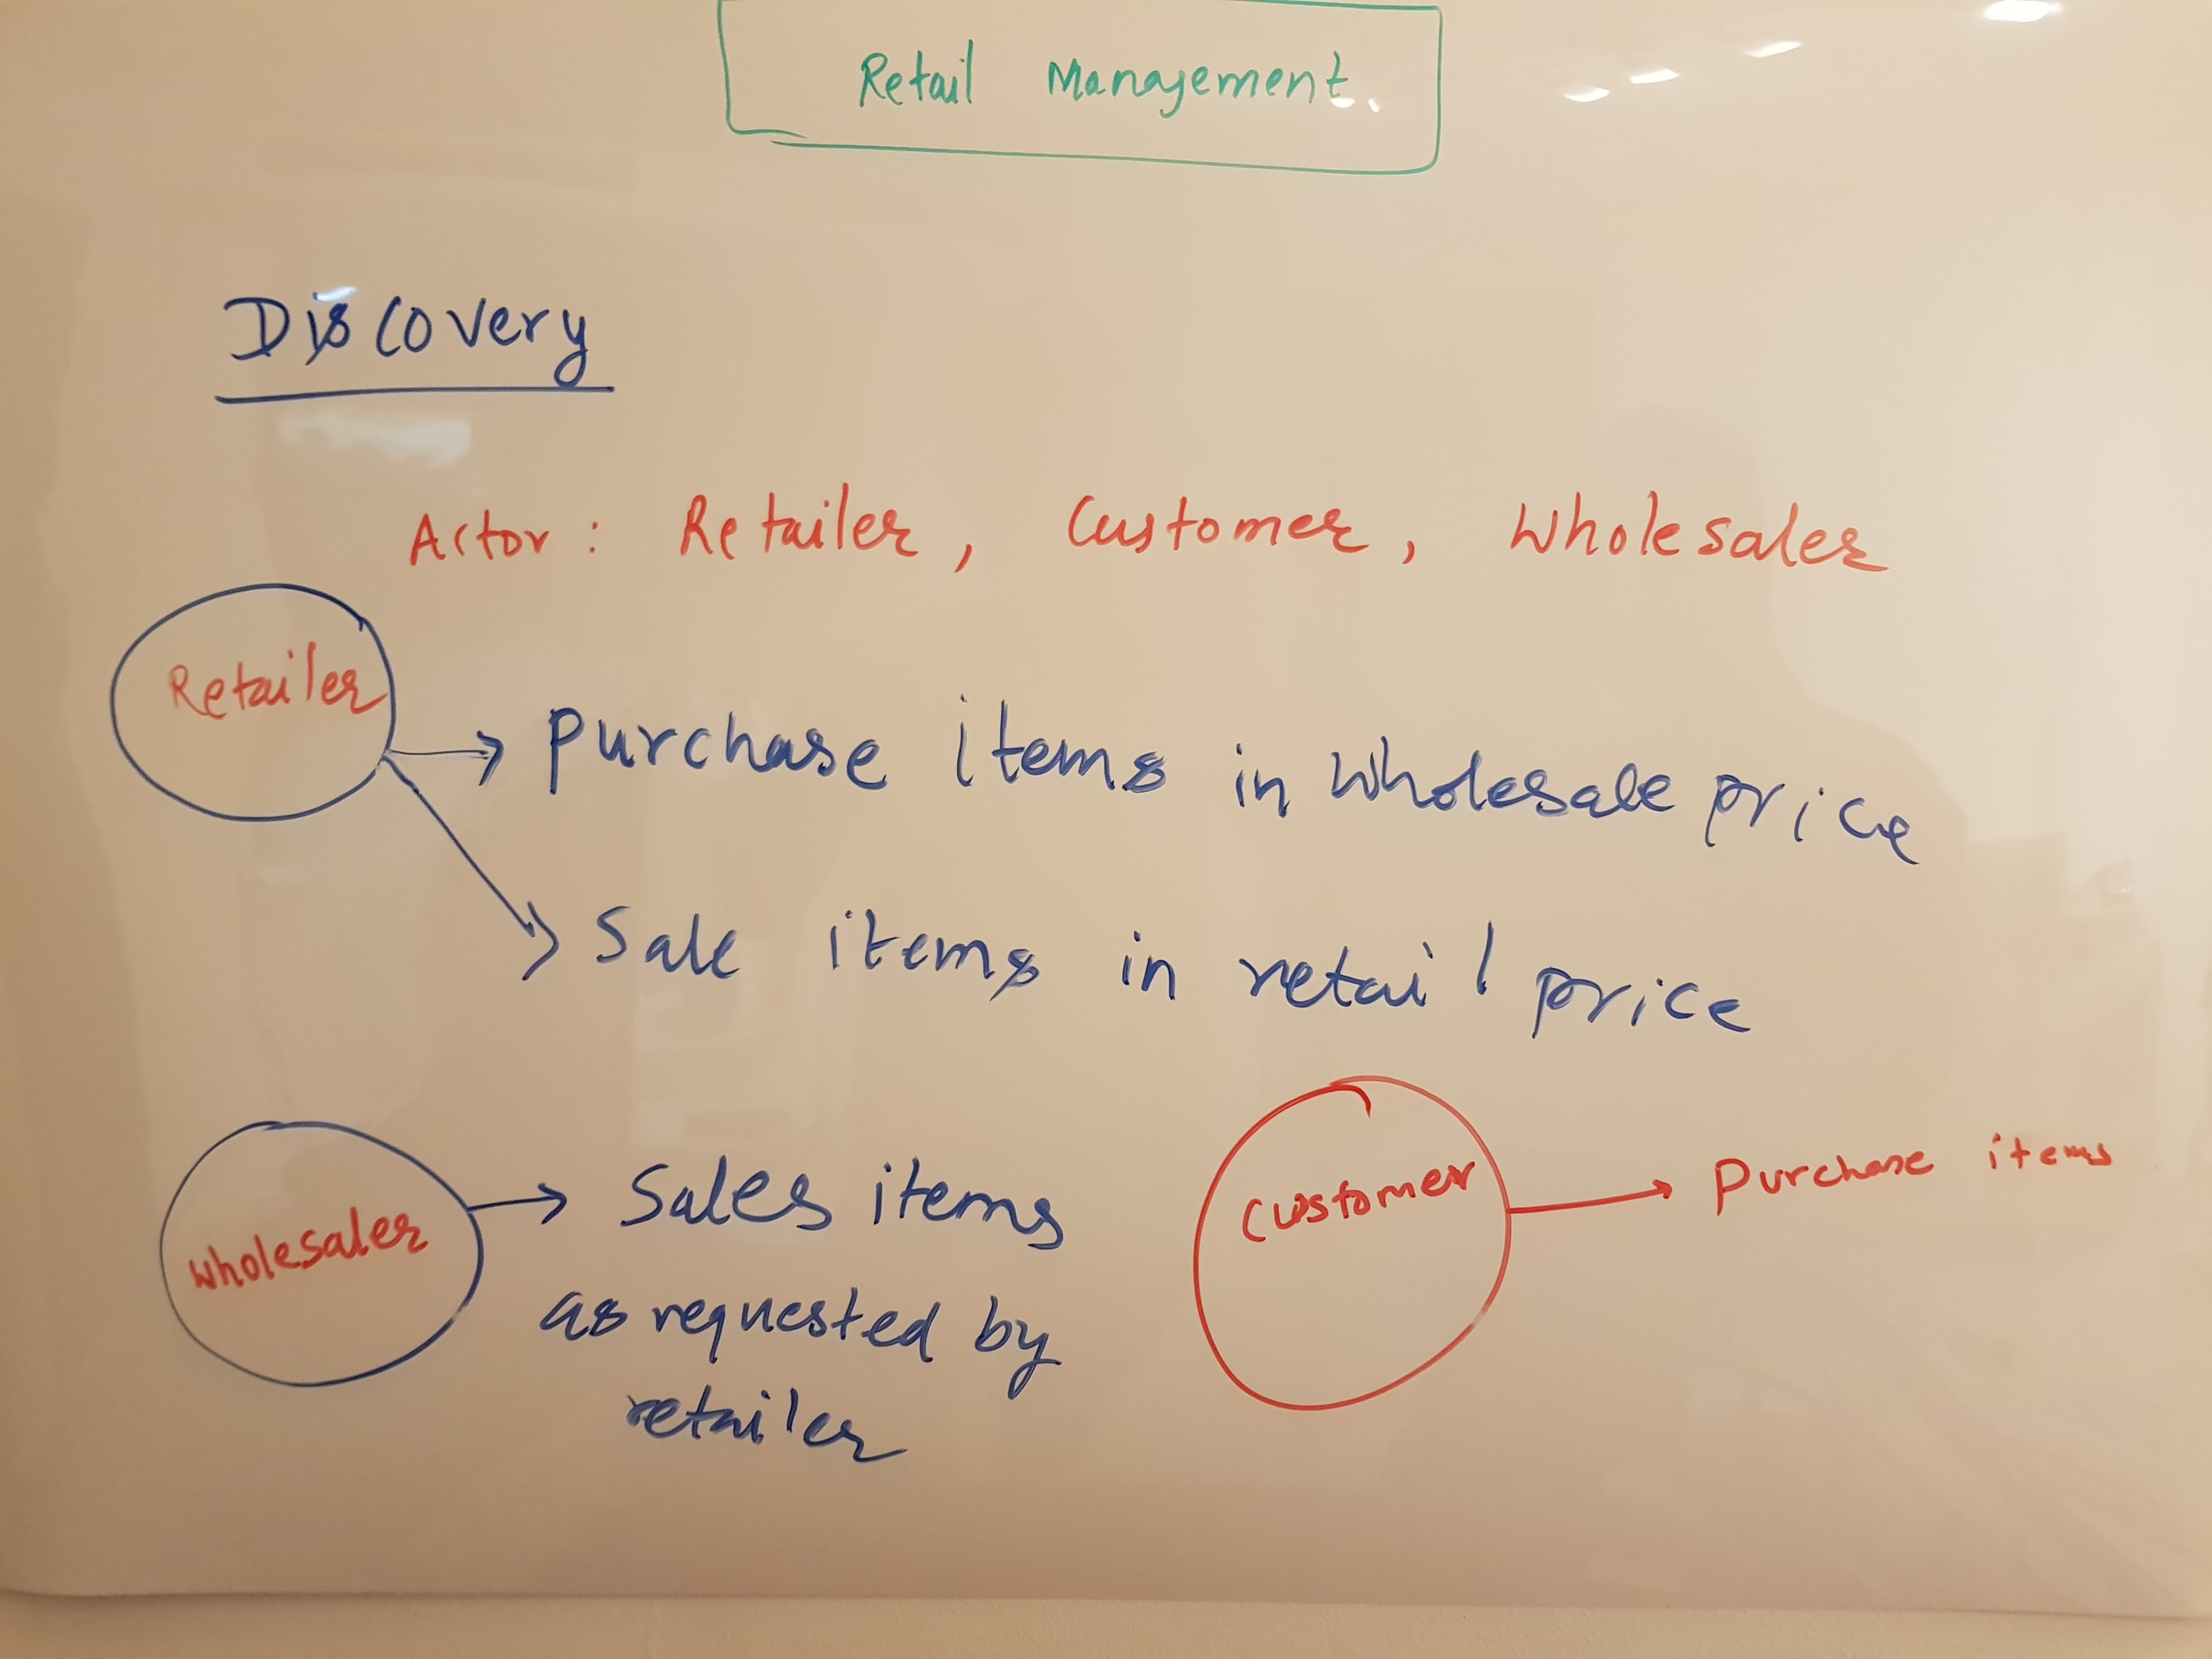 Retail Management.
Discovery
Actor: Retailer, Customer, Wholesaler
Retailer
Purchase items in wholesale price
Sale items in retail price
Wholesaler
Sales items
as requested by
retailer
Customer
Purchase items